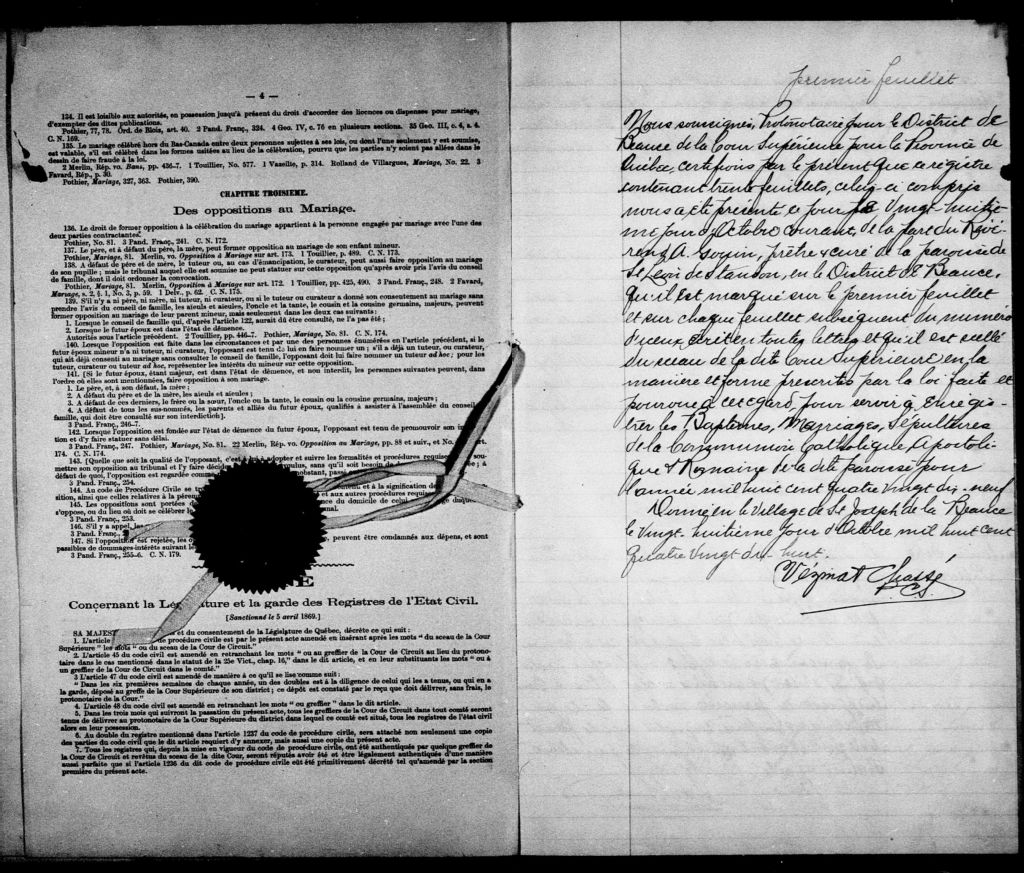 — 4 —
134. Il est loisible aux autorités, en possession jusqu'à présent du droit d'accorder des licences ou dispenses pour mariage,
d'exempter des dites publications.
Pothier, 77, 78. Ord. de Blois, art. 40. 2 Pand. Franç., 324. 4 Geo. IV, c. 76 en plusieurs sections. 35 Geo. III, c. 4, s. 4.
C. N. 169.
135. Le mariage célébré hors du Bas-Canada entre deux personnes sujettes à ses lois, ou dont l'une seulement y est soumise,
est valable, s'il est célébré dans les formes usitées au lieu de la célébration, pourvu que les parties n'y soient pas allées dans le
dessin de faire fraude à la loi.
2 Merlin, Rép. vo. Bans, pp. 436-7. 1 Touillier, No. 577. 1 Vazeille, p. 314. Rolland de Villargues, Mariage, No. 22. 3
Favard, Rép., p. 30.
Pothier, Mariage, 327, 363. Pothier, 390.
CHAPITRE TROISIEME.
Des oppositions au Mariage.
136. Le droit de former opposition à la célébration du mariage appartient à la personne engagée par mariage avec l'une des
deux parties contractantes.
Pothier, No. 81. 3 Pand. Franç., 241. C. N. 172.
137. Le père, et à défaut du père, la mère, peut former opposition au mariage de son enfant mineur.
Pothier, Mariage, 81. Merlin, vo. Opposition à Mariage sur art. 173. 1 Touillier, p. 489. C. N. 173.
138. A défaut de père et de mère, le tuteur ou, au cas d'émancipation, le curateur, peut aussi faire opposition au mariage
de son pupille; mais le tribunal auquel elle est soumise ne peut statuer sur cette opposition qu'après avoir pris l'avis du conseil
de famille, dont il doit ordonner la convocation.
Pothier, Mariage, 81. Merlin, Opposition à Mariage sur art. 172. 1 Touillier, pp. 425, 490. 3 Pand. Franç., 248. 2 Favard,
Mariage, s. 2, § 1, No. 3, p. 59. 1 Delv., p. 62. C. N. 175.
139. S'il n'y a ni père, ni mère, ni tuteur, ni curateur, ou si le tuteur ou curateur a donné son consentement au mariage sans
prendre l'avis du conseil de famille, les aïeuls et aïeules, l'oncle et la tante, le cousin et la cousine germains, majeurs, peuvent
former opposition au mariage de leur parent mineur, mais seulement dans les deux cas suivants:
1. Lorsque le conseil de famille qui, d'après l'article 122, aurait dû être consulté, ne l'a pas été;
2. Lorsque le futur époux est dans l'état de démence.
Autorités sous l'article précédent. 2 Touillier, pp. 446-7. Pothier, Mariage, No. 81. C. N. 174.
140. Lorsque l'opposition est faite dans les circonstances et par une des personnes énumérées en l'article précédent, si le
futur époux mineur n'a ni tuteur, ni curateur, l'opposant est tenu de lui en faire nommer un; s'il a déjà un tuteur, ou curateur,
qui ait déjà consenti au mariage sans consulter le conseil de famille, l'opposant doit lui faire nommer un tuteur ad hoc; pour les
tuteur, curateur ou tuteur ad hoc, représenter les intérêts du mineur sur cette opposition.
141. [Si le futur époux, étant majeur, est dans l'état de démence, et non interdit, les personnes suivantes peuvent, dans
l'ordre où elles sont mentionnées, faire opposition à son mariage.
1. Le père, et, à son défaut, la mère;
2. A défaut du père et de la mère, les aïeuls et aïeules;
3. A défaut de ces derniers, le frère ou la sœur, l'oncle ou la tante, le cousin ou la cousine germains, majeurs;
4. A défaut de tous les sus-nommés, les parents et alliés du futur époux, qualifiés à assister à l'assemblée du conseil
famille, qui doit être consulté sur son interdiction].
3 Pand. Franç., 246-7.
142. Lorsque l'opposition est fondée sur l'état de démence du futur époux, l'opposant est tenu de promouvoir son in
tion et d'y faire statuer sans délai.
3 Pand. Franç., 247. Pothier, Mariage, No. 81. 22 Merlin, Rép. vo. Opposition au Mariage, pp 88 et suiv., et No. art.
174. C. N. 174.
143. [Quelle que soit la qualité de l'opposant, c'est à lui à adopter et suivre les formalités et procédures requises
mettre son opposition au tribunal et l'y faire décid ulus, sans qu'il soit besoin de ; à
défaut de quoi, l'opposition est regardée comme nobstant, passé
3 Pand. Franç., 254.
144. Au Code de Procédure Civile se t et la signification de
sition, ainsi que celles relatives à la pérem et aux autres procédures requises
145. Les oppositions sont portées domicile de celui
s'oppose, ou du lieu où doit se célébrer nal.
3 Pand. Franç., 253.
146. S'il y a appel, les
3 Pand. Franç., 2
147. Si l'opposition est rejetée, les o peuvent être condamnés aux dépens, et sont
passibles de dommages-intérêts suivant le
3 Pand. Franç., 255-6. C. N. 179.
E
Concernant la Légi ature et la garde des Registres de l'Etat Civil.
[Sanctionné le 5 avril 1869.]
SA MAJEST et du consentement de la Législature de Québec, décrète ce qui suit:
1. L'article de procédure civile est par le présent acte amendé en insérant après les mots "du sceau de la Cour
Supérieure" les mots "ou du sceau de la Cour de Circuit."
2. L'article 45 du code civil est amendé en retranchant les mots "ou au greffier de la Cour de Circuit au lieu du protono-
taire dans le cas mentionné dans le statut de la 25e Vict., chap. 16," dans le dit article, et en leur substituants les mots "ou à
un greffier de la Cour de Circuit dans le comté."
3 L'article 47 du code civil est amendé de manière à ce qu'il se lise comme suit:
"Dans les six premières semaines de chaque année, un des doubles est à la diligence de celui qui les a tenus, ou qui en a
la garde, déposé au greffe de la Cour Supérieure de son district; ce dépôt est constaté par le reçu que doit délivrer, sans frais, le
protonotaire de la Cour."
4. L'article 48 du code civil est amendé en retranchant les mots "ou greffier" dans le dit article.
5. Dans les trois mois qui suivront la passation du présent acte, tous les greffiers de la Cour de Circuit dans tout comté seront
tenus de délivrer au protonotaire de la Cour Supérieure du district dans lequel ce comté est situé, tous les registres de l'état civil
alors en leur possession.
6. Au double du registre mentionné dans l'article 1237 du code de procédure civile, sera attaché non seulement une copie
des parties du code civil que le dit article requiert d'y annexer, mais aussi une copie du présent acte.
7. Tous les registres qui, depuis la mise en vigueur du code de procédure civile, ont été authentiqués par quelque greffier de
la Cour de Circuit et revêtus du sceau de la dite Cour, seront réputés avoir été et être légalement authentiqués d'une manière
aussi parfaite que si l'article 1236 du dit code de procédure civile eût été primitivement décrété tel qu'amendé par la section
première du présent acte.
premier feuillet
Nous soussignés, Protonotaire pour le District de
Beauce de la Cour Supérieure pour la Province de
Québec, certifions par le présent que ce régistre
contenant trente feuillets, celui-ci compris
nous a été présenté ce jour le Vingt huitiè-
me jour d'Octobre courant, de la part du Révé-
rend A. Gosin, prêtre & curé de la paroisse de
St Léon de Standon, en le District de Beauce,
qu'il est marqué sur le premier feuillet
et sur chaque feuillet subséquent du numéro
d'iceux écrit en toutes lettres et qu'il est scellé
du sceau de la dite Cour Supérieure en la
manière et forme prescrites par la loi faite et
pourvue à cet égard, pour servir à Enrégis-
trer les Baptêmes, Marriages, Sépultures
de la Communion Catholique Apostoli-
que & Romaine de la dite paroisse pour
l'année mil huit cent quatre vingt dix-neuf
Donné en le Village de St Joseph de la Beauce
le Vingt-huitième jour d'Octobre mil huit cent
quatre vingt dix-huit.
Vézina & Chassé
P. C. S.